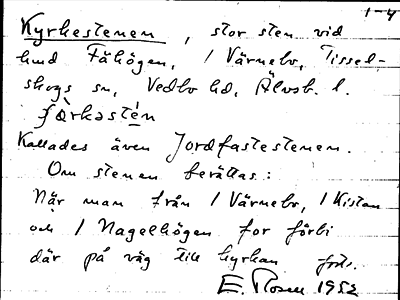 1-4
Kyrkestenen, stor sten vid
lund Fähögen, / Värnebo, Tissel-
skogs sn, Vedbo hd, Älvsb. l.
Kallades även Jordfastestenen.
Om stenen berättas:
När man från / Värnebo, / Kistan
och / Nagelhögen for förbi
där på väg till kyrkan forts.
E. Rosen 1952